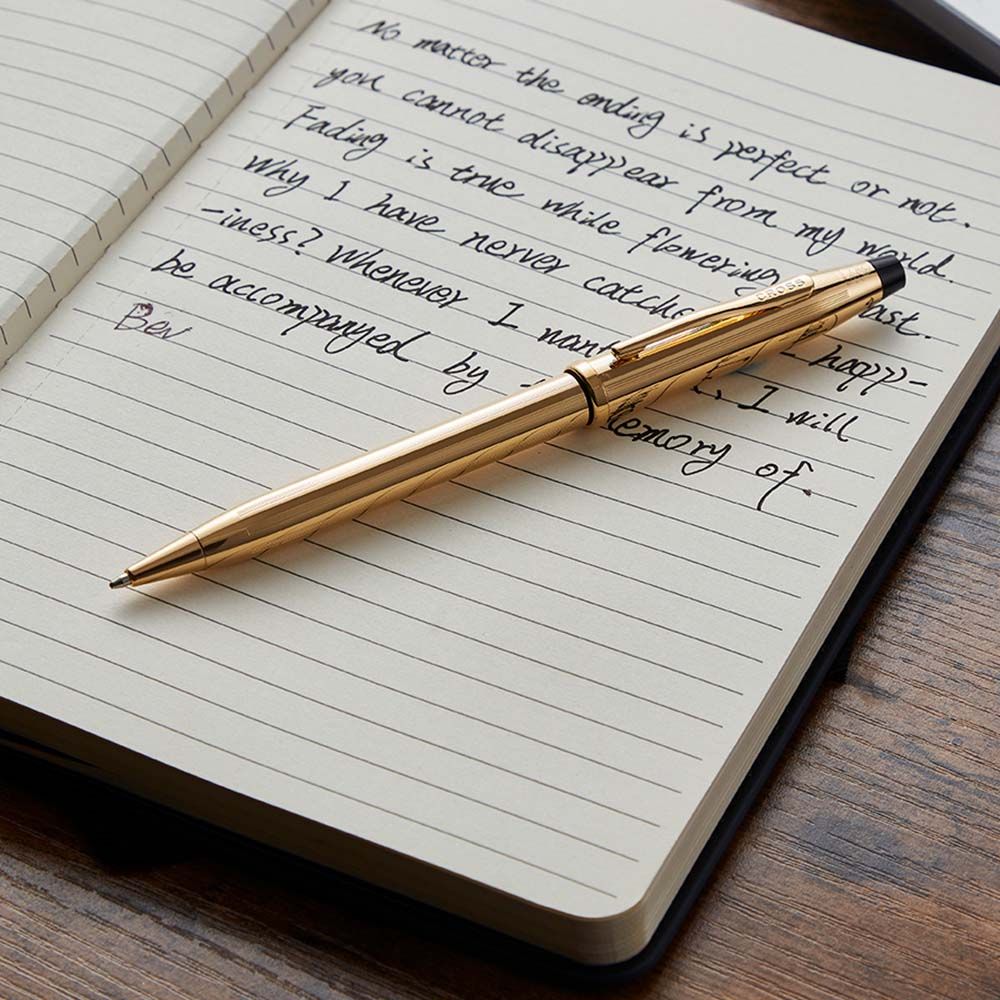 No matter the ending is perfect or not.
you cannot disappear from my world.
Fading is true while flowering past.
Why I have nerver happ-
-iness? Whenever I want I will
be accompanyed by memory of.
Bev
CROSS